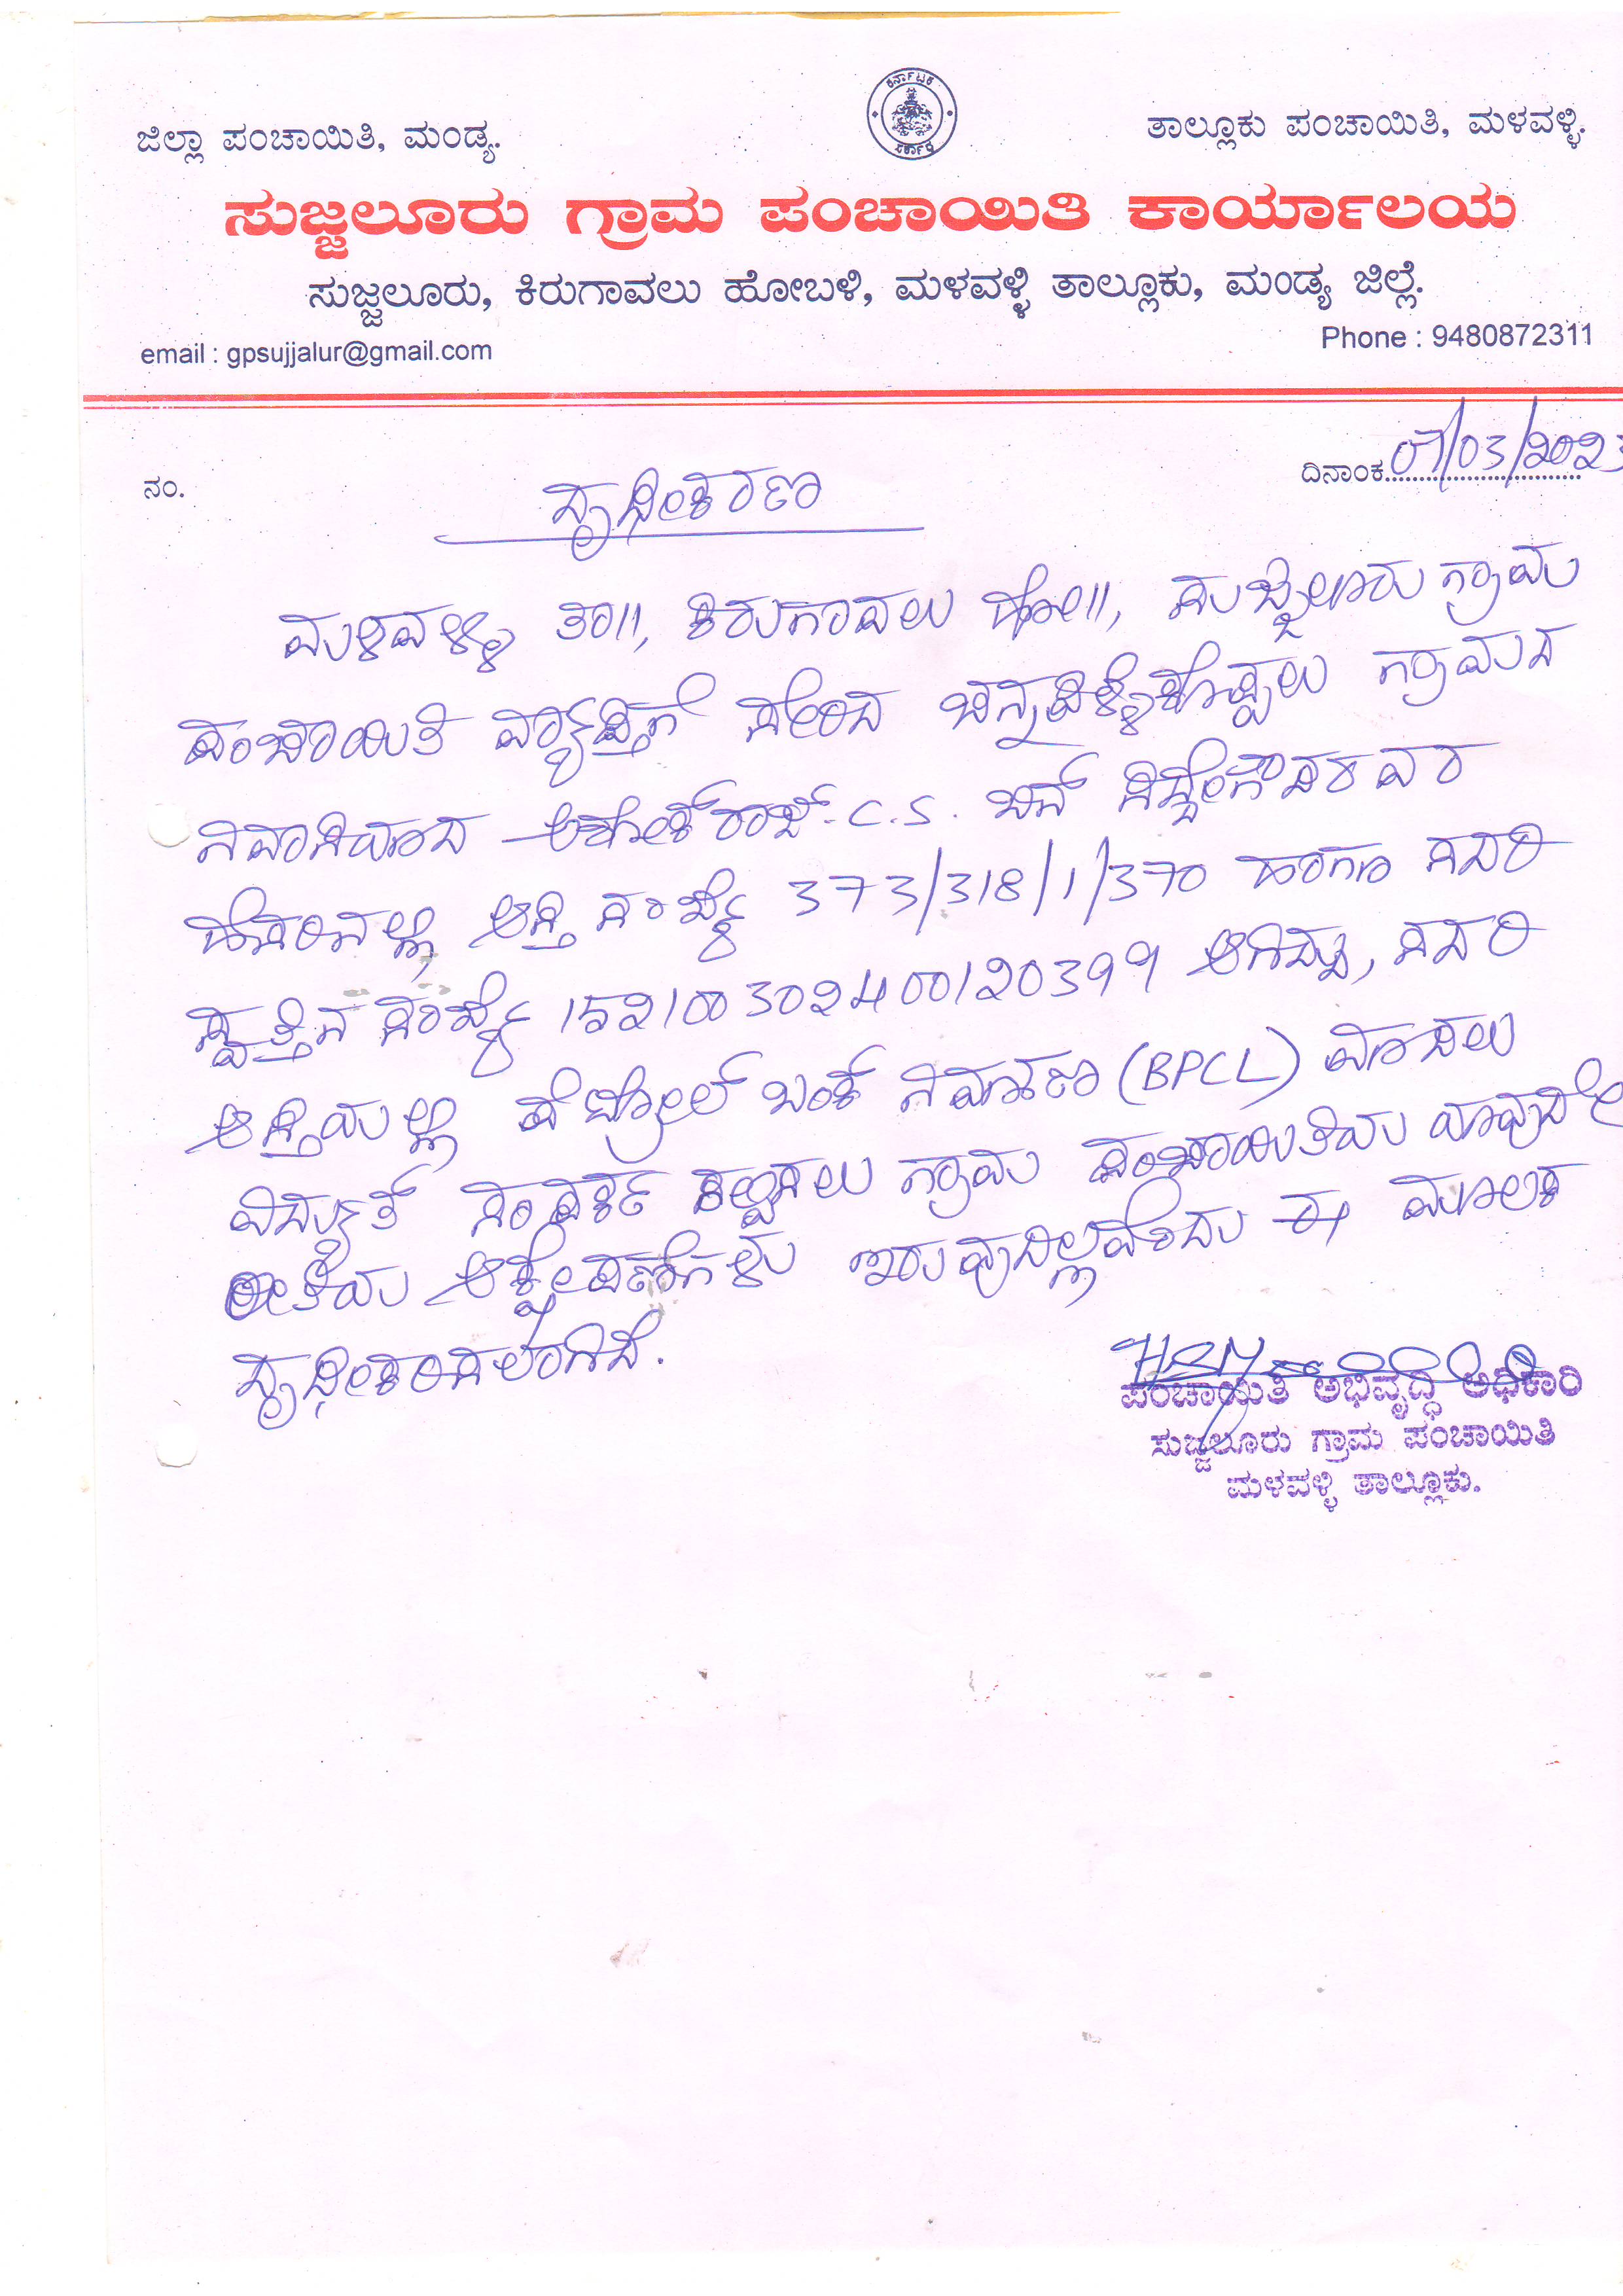 ಕರ್ನಾಟಕ
ಸರ್ಕಾರ
ಜಿಲ್ಲಾ ಪಂಚಾಯಿತಿ, ಮಂಡ್ಯ.
ತಾಲ್ಲೂಕು ಪಂಚಾಯಿತಿ, ಮಳವಳ್ಳಿ.
ಸುಜ್ಜಲೂರು ಗ್ರಾಮ ಪಂಚಾಯಿತಿ ಕಾರ್ಯಾಲಯ
ಸುಜ್ಜಲೂರು, ಕಿರುಗಾವಲು ಹೋಬಳಿ, ಮಳವಳ್ಳಿ ತಾಲ್ಲೂಕು, ಮಂಡ್ಯ ಜಿಲ್ಲೆ.
email : gpsujjalur@gmail.com
Phone : 9480872311
ನಂ.
ದಿನಾಂಕ
ದೃಢೀಕರಣ
ಮಳವಳ್ಳಿ ತಾ||, ಕಿರುಗಾವಲು ಹೋ||, ಸುಜ್ಜಲೂರು ಗ್ರಾಮ
ಪಂಚಾಯಿತಿ ವ್ಯಾಪ್ತಿಗೆ ಸೇರಿದ ಗ್ರಾಮದ
ನಿವಾಸಿಯಾದ ಅಶೋಕ್‌ರಾಜ್. C.S. ಬಿನ್ ಸಿದ್ದೇಗೌಡರವರ
ಹೆಸರಿನಲ್ಲಿ ಆಸ್ತಿ ಸಂಖ್ಯೆ 373/318/1/370 ಹಾಗೂ ಸದರಿ
ಸ್ವತ್ತಿನ ಸಂಖ್ಯೆ 152100302400120399 ಆಗಿದ್ದು, ಸದರಿ
ಆಸ್ತಿಯಲ್ಲಿ ಪೆಟ್ರೋಲ್ ಬಂಕ್ ನಿರ್ಮಾಣ (BPCL) ಮಾಡಲು
ವಿದ್ಯುತ್ ಸಂಪರ್ಕ ಕಲ್ಪಿಸಲು ಗ್ರಾಮ ಪಂಚಾಯಿತಿಯ ಯಾವುದೇ
ರೀತಿಯ ಆಕ್ಷೇಪಣೆಗಳು ಇರುವುದಿಲ್ಲವೆಂದು ಈ ಮೂಲಕ
ದೃಢೀಕರಿಸಲಾಗಿದೆ.
ಪಂಚಾಯಿತಿ ಅಭಿವೃದ್ಧಿ ಅಧಿಕಾರಿ
ಸುಜ್ಜಲೂರು ಗ್ರಾಮ ಪಂಚಾಯಿತಿ
ಮಳವಳ್ಳಿ ತಾಲ್ಲೂಕು.